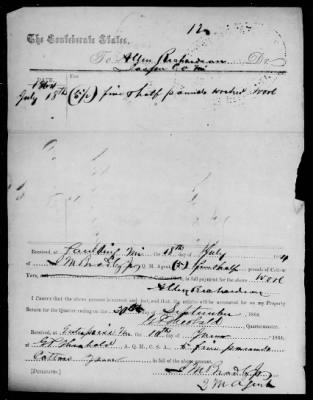 12
The Confederate States,
To Allen Richardson Dr
Jasper Co Mi
DATE. For
1864
July 18th (5½) five & half pounds washed wool
Received, at Paulding Mi the 18th day of July 4
of J M Brady Q. M. Agent (5) five & half pounds of Cotton
Yarn, in full payment for the above Wool
Allen Richardson
I Certify that the above account is correct and just, and that the articles will be accounted for on my Property
Return for the Quarter ending on the 30th September 1864.
Quartermaster.
Received, at Enterprise Mi the 18th day of 1864,
of A. Q. M., C. S. A., five pounds
Cotton Yarn in full of the above account.
[DUPLICATES.] J M Brady
Q M Agent